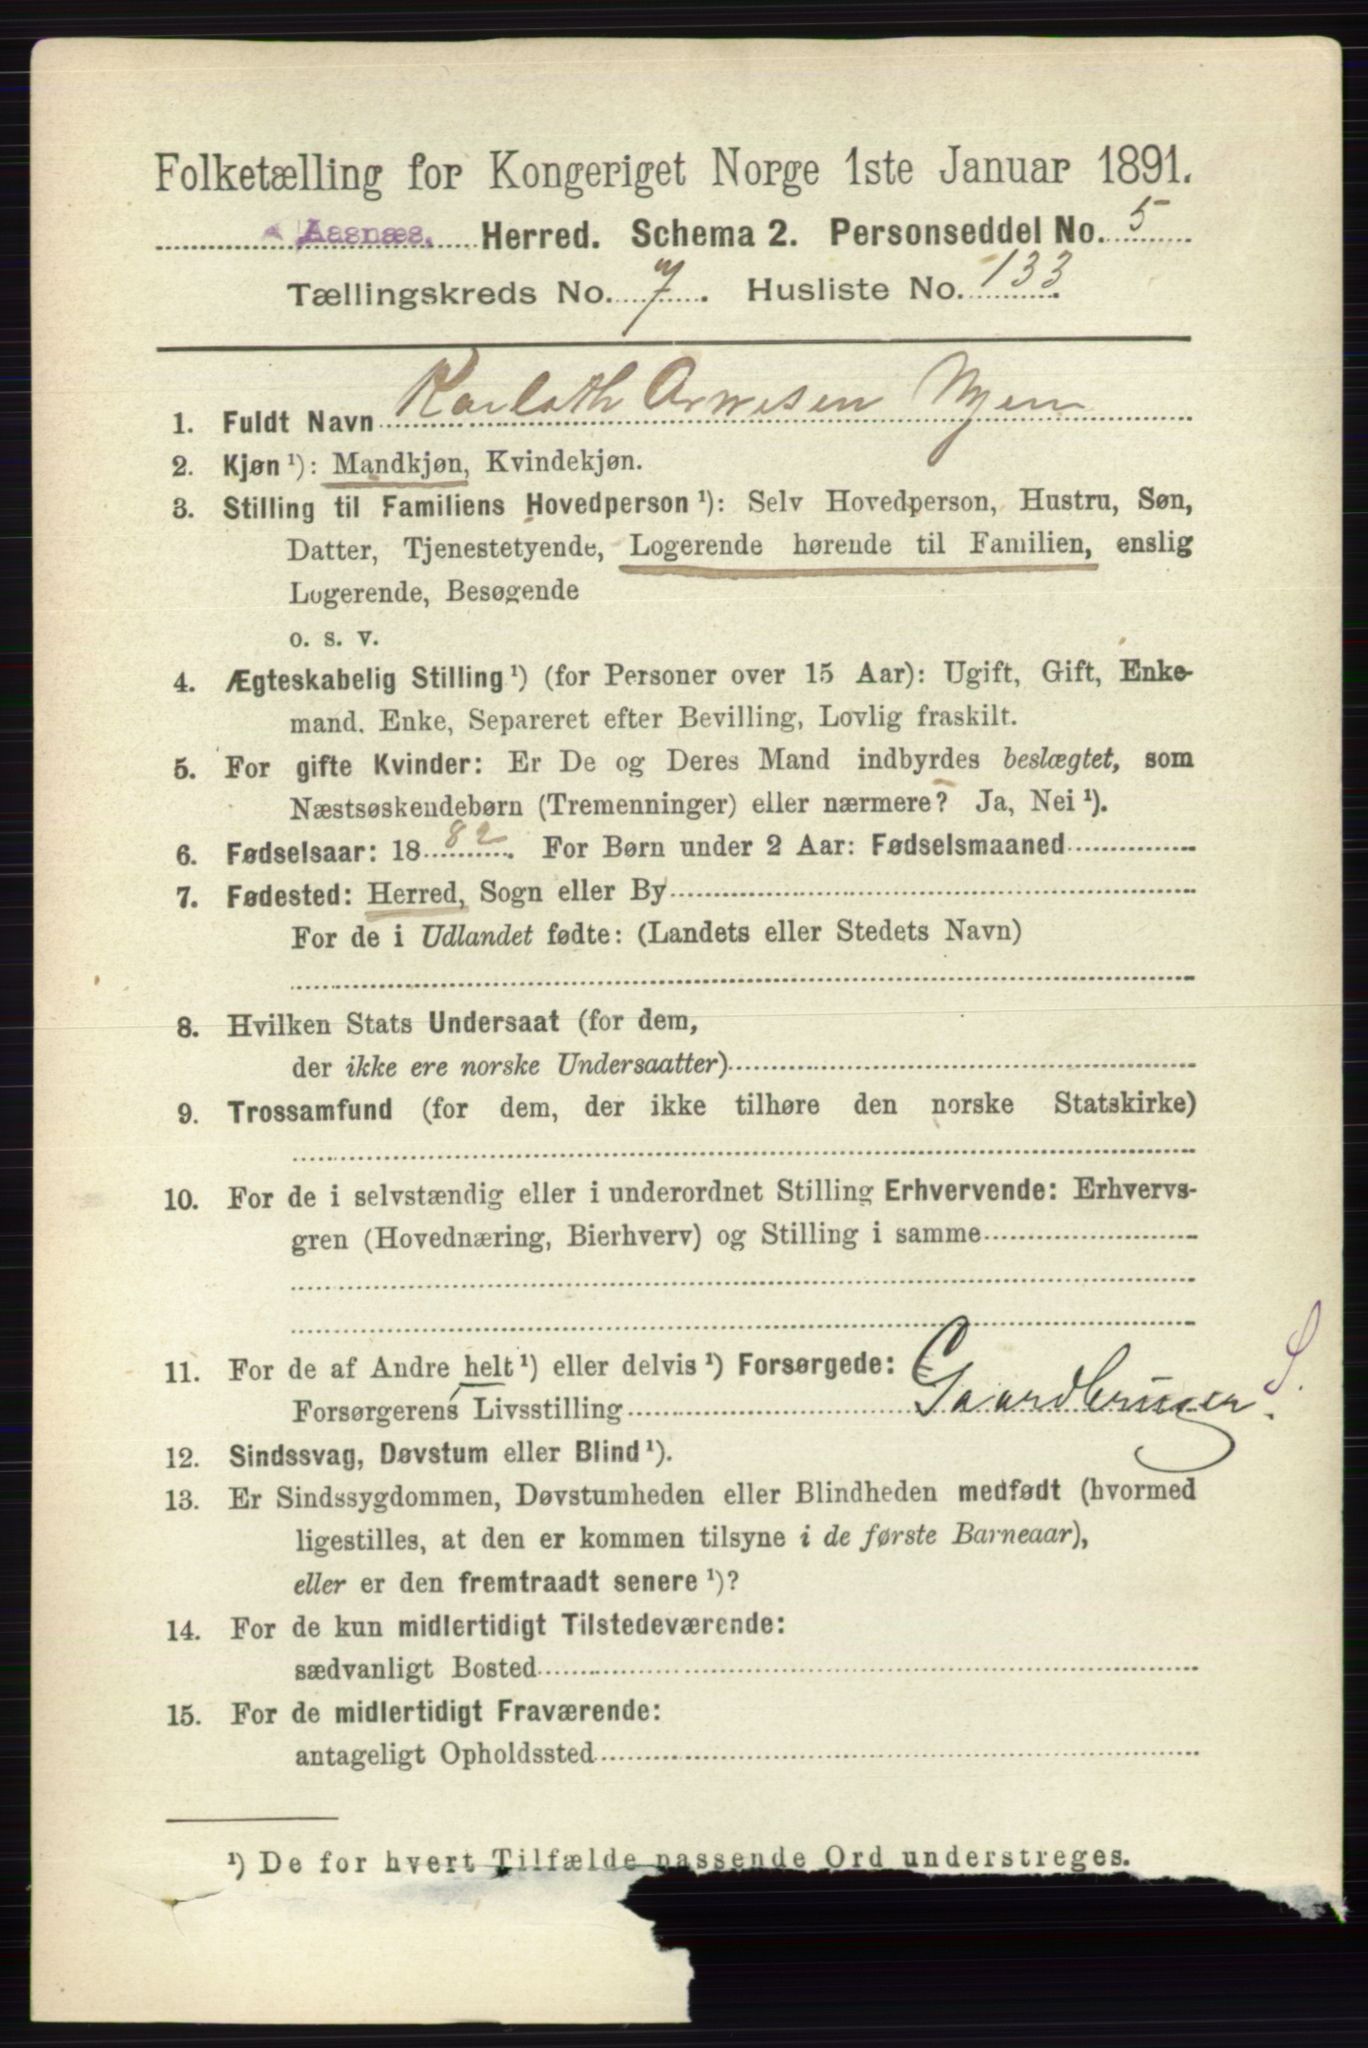 Folketælling for Kongeriget Norge 1ste Januar 1891.
Aasnæs. Herred. Schema 2. Personseddel No. 5
Tællingskreds No. 7. Husliste No. 133
1. Fuldt Navn Karloth Arnesen Myen
2. Kjøn ¹): Mandkjøn, Kvindekjøn.
3. Stilling til Familiens Hovedperson ¹): Selv Hovedperson, Hustru, Søn,
Datter, Tjenestetyende, Logerende hørende til Familien, enslig
Logerende, Besøgende
o. s. v.
4. Ægteskabelig Stilling ¹) (for Personer over 15 Aar): Ugift, Gift, Enke-
mand, Enke, Separeret efter Bevilling, Lovlig fraskilt.
5. For gifte Kvinder: Er De og Deres Mand indbyrdes beslægtet, som
Næstsøskendebørn (Tremenninger) eller nærmere? Ja, Nei ¹).
6. Fødselsaar: 1882. For Børn under 2 Aar: Fødselsmaaned
7. Fødested: Herred, Sogn eller By
For de i Udlandet fødte: (Landets eller Stedets Navn)
8. Hvilken Stats Undersaat (for dem,
der ikke ere norske Undersaatter)
9. Trossamfund (for dem, der ikke tilhøre den norske Statskirke)
10. For de i selvstændig eller i underordnet Stilling Erhvervende: Erhvervs-
gren (Hovednæring, Bierhverv) og Stilling i samme
11. For de af Andre helt ¹) eller delvis ¹) Forsørgede:
Forsørgerens Livsstilling Gaardbruger. S.
12. Sindssvag, Døvstum eller Blind ¹).
13. Er Sindssygdommen, Døvstumheden eller Blindheden medfødt (hvormed
ligestilles, at den er kommen tilsyne i de første Barneaar),
eller er den fremtraadt senere ¹)?
14. For de kun midlertidigt Tilstedeværende:
sædvanligt Bosted
15. For de midlertidigt Fraværende:
antageligt Opholdssted
¹) De for hvert Tilfælde passende Ord understreges.